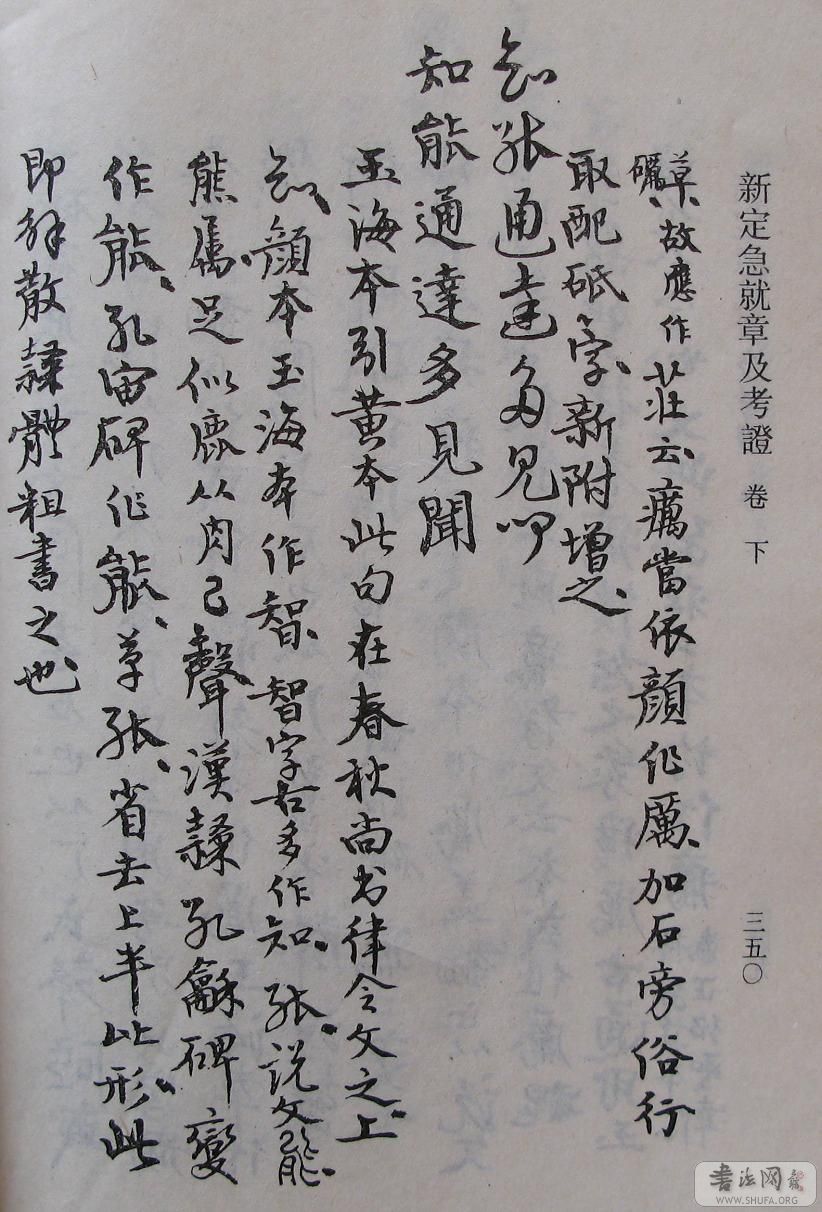 新定急就章及考證 卷下 三五〇
草、故應作
礪、
莊云癘當依顏作厲、加石旁俗行
取配砥字、新附增之、
知能通達多見聞
知能通達多見聞
玉海本引黃本此句在春秋尚书律令文之上、
知、顏本玉海本作智、智字古多作知、能、説文能、
熊屬、足似鹿从肉㠯聲漢隸孔龢碑變
作能、孔宙碑作能、草能、省去上半比形、此
即解散隸體粗書之也、
書法网
WWW.SHUFA.ORG